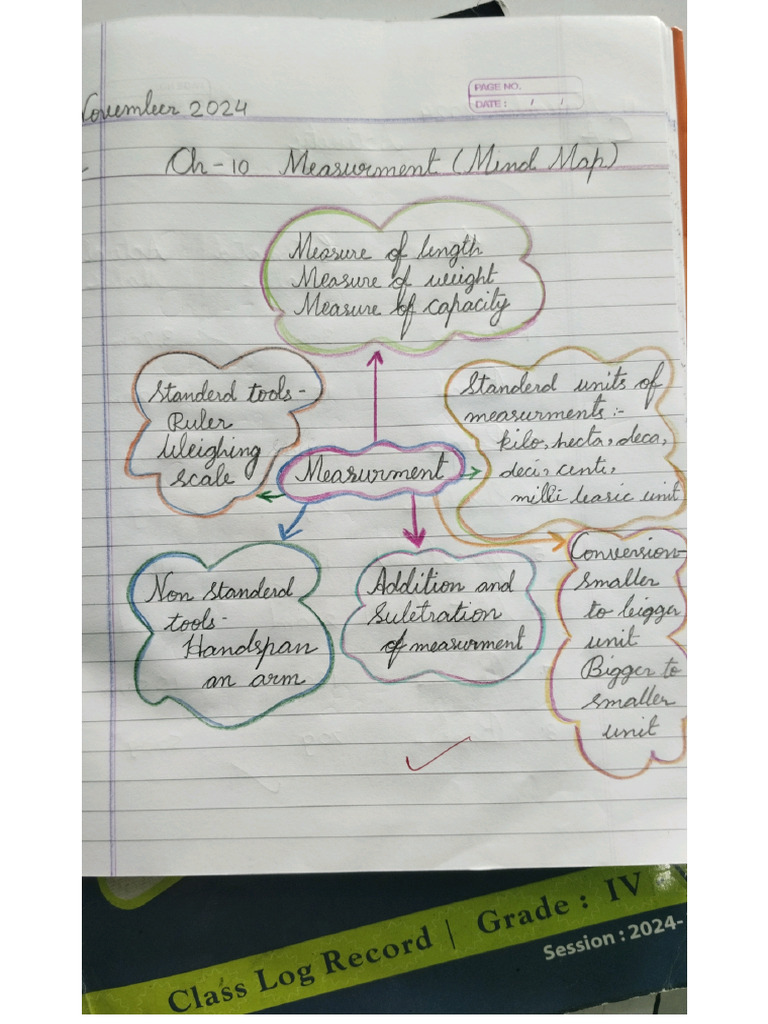 November 2024
PAGE NO.
DATE: / /
Ch-10 Measurment (Mind Map)
Measure of length
Measure of weight
Measure of capacity
Standerd tools-
Ruler
Weighing
scale
Standerd units of
measurments :-
kilo, hecta, deca,
deci, centi,
milli basic unit
Measurment
Non Standerd
tools-
Handspan
an arm
Addition and
Subtration
of measurment
Conversion-
smaller
to bigger
unit
Bigger to
smaller
unit
Class Log Record | Grade : IV
Session : 2024-